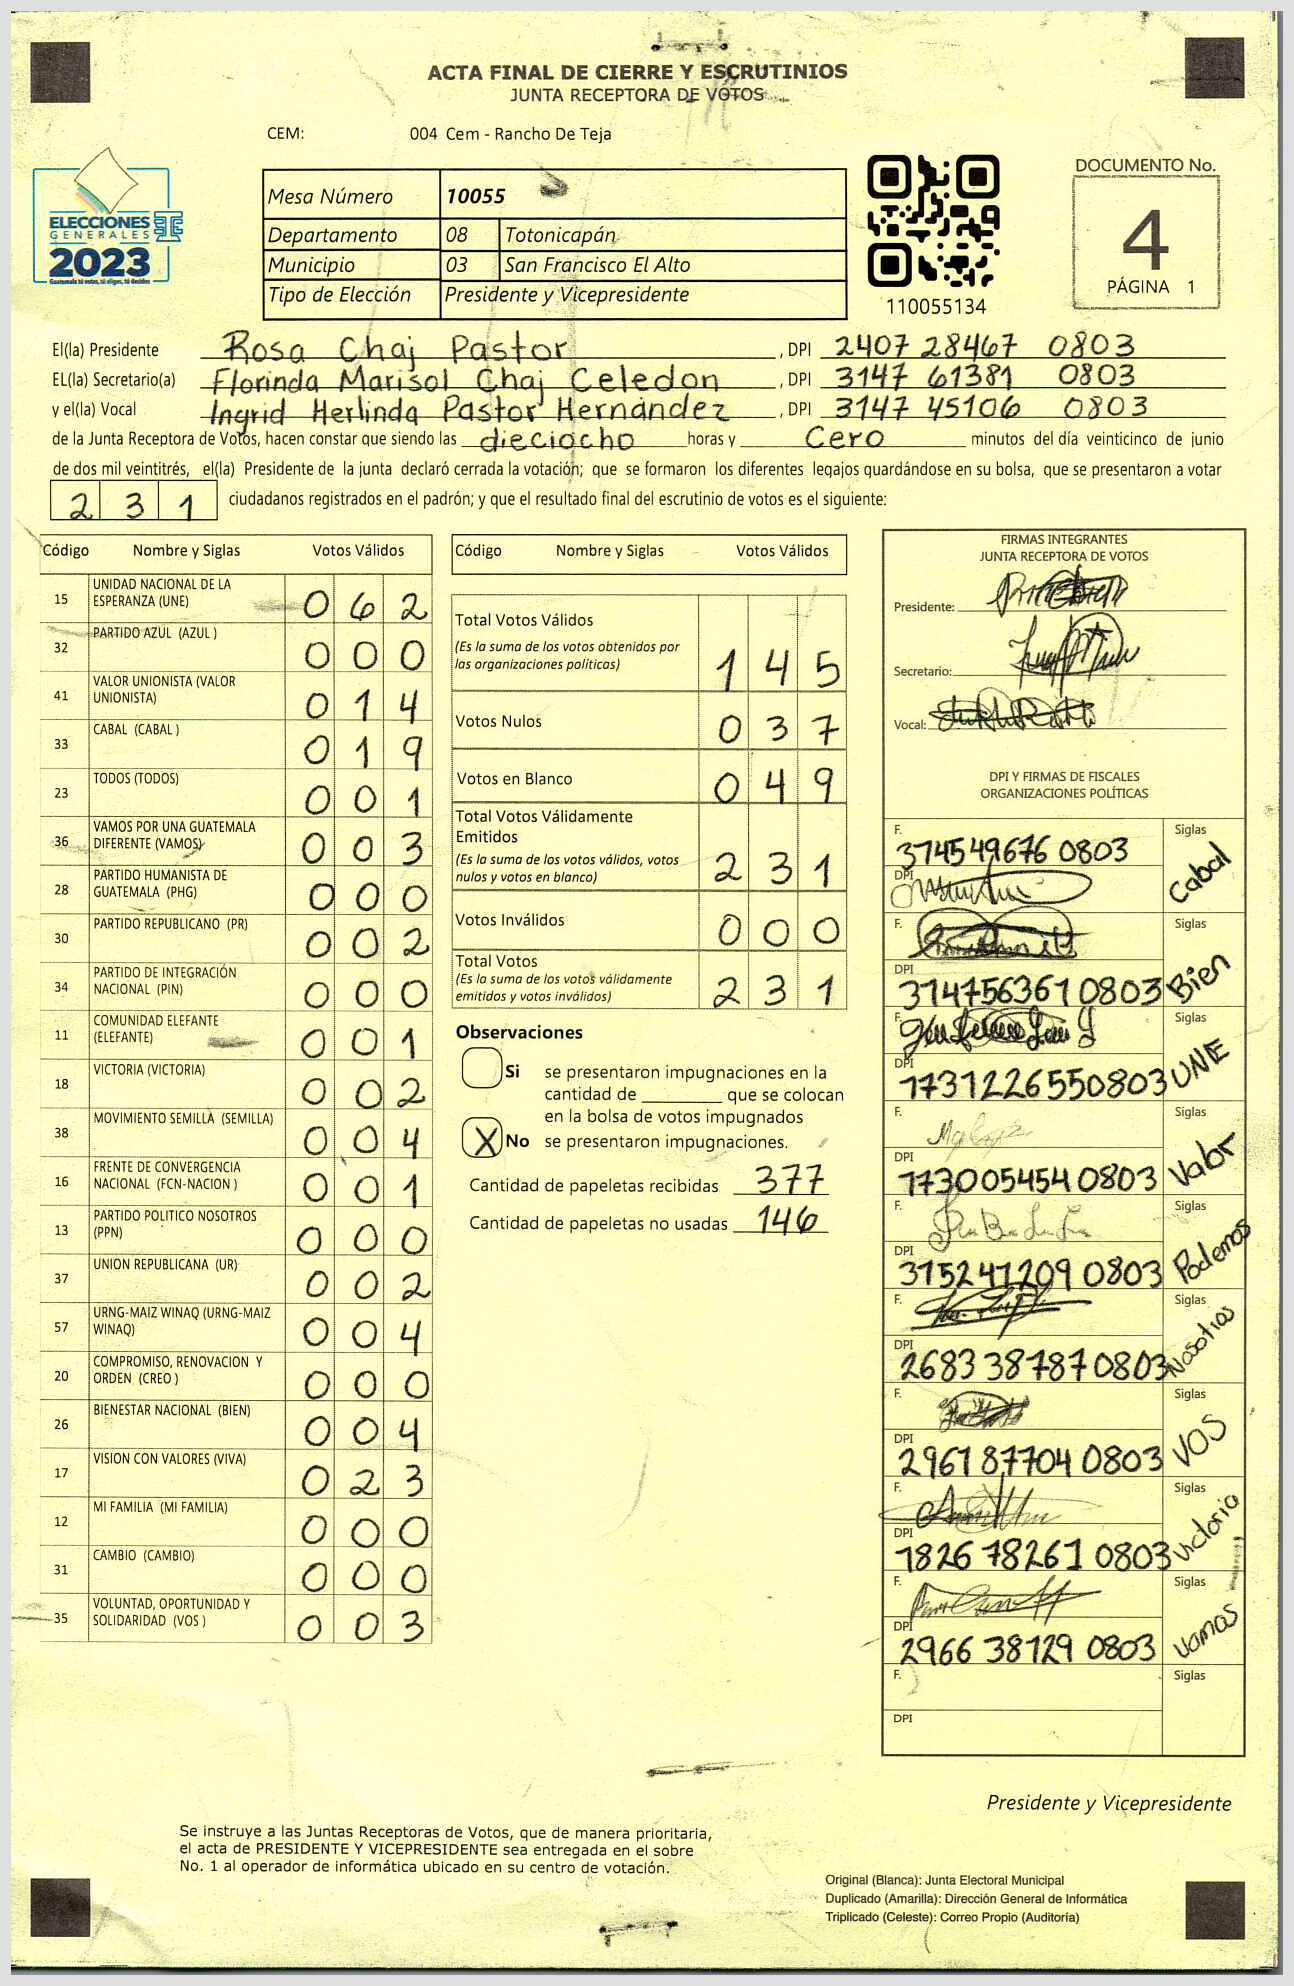 ACTA FINAL DE CIERRE Y ESCRUTINIOS
JUNTA RECEPTORA DE VOTOS
CEM: 004 Cem - Rancho De Teja
ELECCIONES
GENERALES
2023
Guatemala tú votas, tú eliges, tú decides
Mesa Número 10055
Departamento 08 Totonicapán
Municipio 03 San Francisco El Alto
Tipo de Elección Presidente y Vicepresidente
110055134
DOCUMENTO No.
4
PÁGINA 1
El(la) Presidente Rosa Chaj Pastor , DPI 2407 28467 0803
EL(la) Secretario(a) Florinda Marisol Chaj Celedon , DPI 3147 61381 0803
y el(la) Vocal Ingrid Herlinda Pastor Hernández , DPI 3147 45106 0803
de la Junta Receptora de Votos, hacen constar que siendo las dieciocho horas y Cero minutos del día veinticinco de junio
de dos mil veintitrés, el(la) Presidente de la junta declaró cerrada la votación; que se formaron los diferentes legajos guardándose en su bolsa, que se presentaron a votar
231 ciudadanos registrados en el padrón; y que el resultado final del escrutinio de votos es el siguiente:
Código Nombre y Siglas Votos Válidos
15 UNIDAD NACIONAL DE LA ESPERANZA (UNE) 0 6 2
32 PARTIDO AZUL (AZUL ) 0 0 0
41 VALOR UNIONISTA (VALOR UNIONISTA) 0 1 4
33 CABAL (CABAL ) 0 1 9
23 TODOS (TODOS) 0 0 1
36 VAMOS POR UNA GUATEMALA DIFERENTE (VAMOS) 0 0 3
28 PARTIDO HUMANISTA DE GUATEMALA (PHG) 0 0 0
30 PARTIDO REPUBLICANO (PR) 0 0 2
34 PARTIDO DE INTEGRACIÓN NACIONAL (PIN) 0 0 0
11 COMUNIDAD ELEFANTE (ELEFANTE) 0 0 1
18 VICTORIA (VICTORIA) 0 0 2
38 MOVIMIENTO SEMILLA (SEMILLA) 0 0 4
16 FRENTE DE CONVERGENCIA NACIONAL (FCN-NACION ) 0 0 1
13 PARTIDO POLITICO NOSOTROS (PPN) 0 0 0
37 UNION REPUBLICANA (UR) 0 0 2
57 URNG-MAIZ WINAQ (URNG-MAIZ WINAQ) 0 0 4
20 COMPROMISO, RENOVACION Y ORDEN (CREO ) 0 0 0
26 BIENESTAR NACIONAL (BIEN) 0 0 4
17 VISION CON VALORES (VIVA) 0 2 3
12 MI FAMILIA (MI FAMILIA) 0 0 0
31 CAMBIO (CAMBIO) 0 0 0
35 VOLUNTAD, OPORTUNIDAD Y SOLIDARIDAD (VOS ) 0 0 3
Código Nombre y Siglas Votos Válidos
Total Votos Válidos
(Es la suma de los votos obtenidos por
las organizaciones políticas) 1 4 5
Votos Nulos 0 3 7
Votos en Blanco 0 4 9
Total Votos Válidamente
Emitidos
(Es la suma de los votos válidos, votos
nulos y votos en blanco) 2 3 1
Votos Inválidos 0 0 0
Total Votos
(Es la suma de los votos válidamente
emitidos y votos inválidos) 2 3 1
Observaciones
Si se presentaron impugnaciones en la
cantidad de ________ que se colocan
en la bolsa de votos impugnados
X No se presentaron impugnaciones.
Cantidad de papeletas recibidas 377
Cantidad de papeletas no usadas 146
FIRMAS INTEGRANTES
JUNTA RECEPTORA DE VOTOS
Presidente:
Secretario:
Vocal:
DPI Y FIRMAS DE FISCALES
ORGANIZACIONES POLÍTICAS
F. Siglas
374549676 0803
DPI Cabal
F. Siglas
DPI
314756361 0803 Bien
F. Siglas
DPI
1731226550803 UNE
F. Siglas
DPI
173005454 0803 Valor
F. Siglas
DPI
315241209 0803 Podemos
F. Siglas
DPI
2683 38787 0803 Nosotros
F. Siglas
DPI
2961 87704 0803 VOS
F. Siglas
DPI
1826 78261 0803 Victoria
F. Siglas
DPI
2966 38129 0803 Vamos
F. Siglas
DPI
Presidente y Vicepresidente
Se instruye a las Juntas Receptoras de Votos, que de manera prioritaria,
el acta de PRESIDENTE Y VICEPRESIDENTE sea entregada en el sobre
No. 1 al operador de informática ubicado en su centro de votación.
Original (Blanca): Junta Electoral Municipal
Duplicado (Amarilla): Dirección General de Informática
Triplicado (Celeste): Correo Propio (Auditoría)